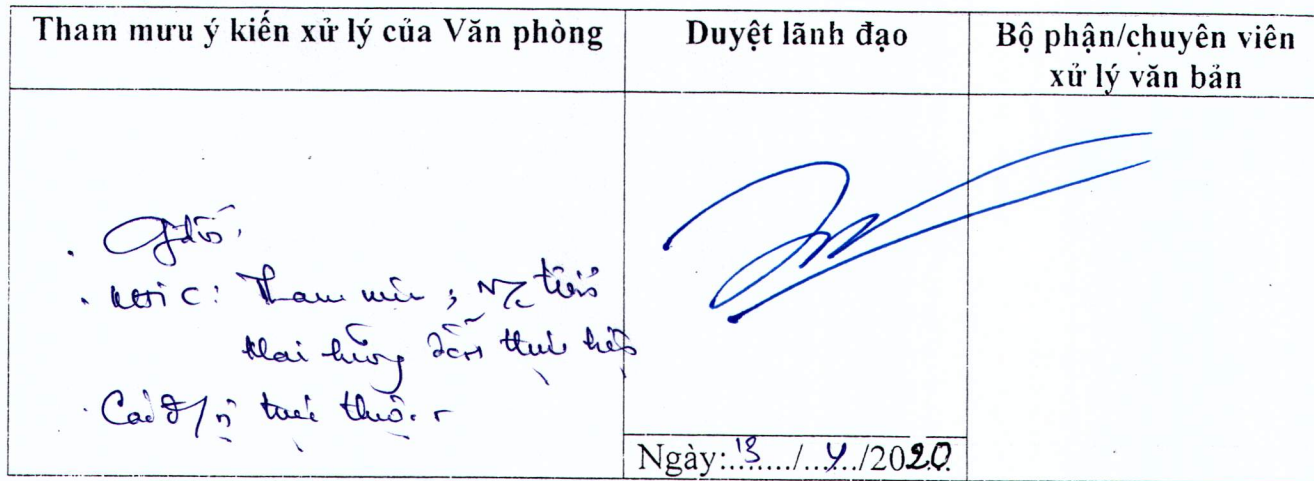 Tham mưu ý kiến xử lý của Văn phòng
Duyệt lãnh đạo
Bộ phận/chuyên viên
xử lý văn bản
Tham mưu
khai hướng dẫn thực hiện
trực thuộc
Ngày:.13..../..4./2020.